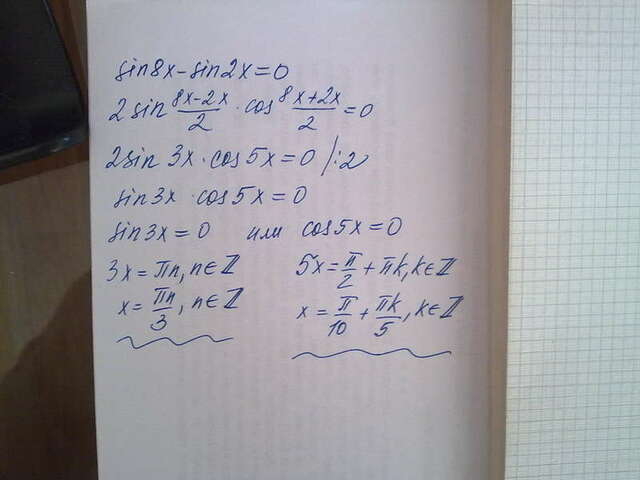 sin8x-sin2x=0
2 sin (8x-2x)/2 · cos (8x+2x)/2 =0
2sin 3x·cos 5x=0 /:2
sin3x · cos 5x=0
sin3x=0 или cos5x=0
3x=πn, n∈ℤ 5x=π/2+πk, k∈ℤ
x=πn/3, n∈ℤ x=π/10+πk/5, k∈ℤ